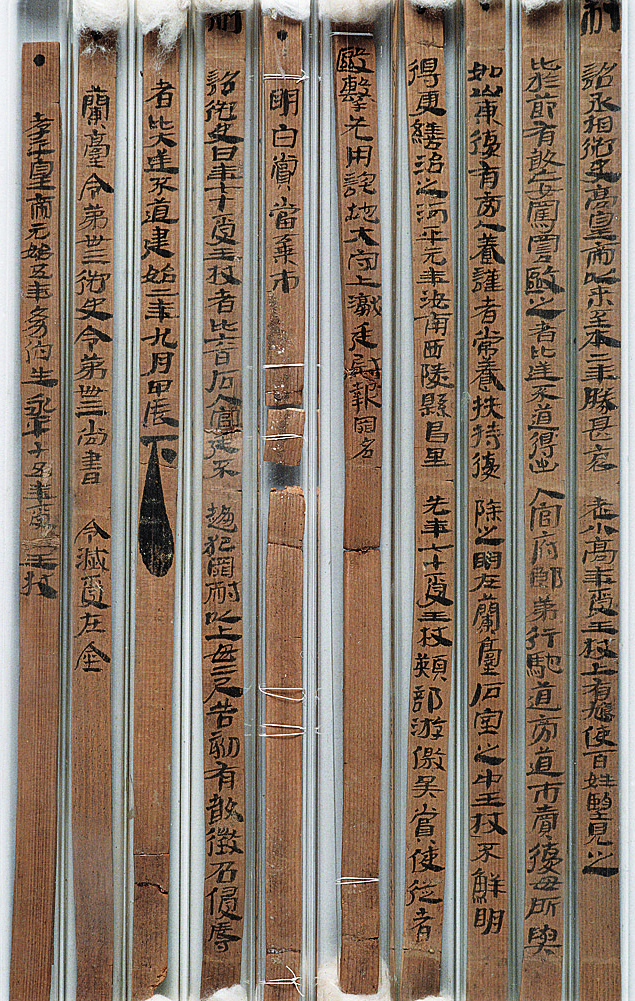 制詔丞相御史高皇帝以來至本二年勝甚哀老小高年受王杖上有鳩使百姓望見之
比於節有敢妄罵詈毆之者比逆不道得出入官府郎第行馳道旁道市賣復毋所與
如山東復有旁人養謹者常養扶持復除之明在蘭臺石室之中王杖不鮮明
得更繕治之河平元年汝南西陵縣昌里先年七十受王杖熲部游徼吳賞使從者
毆擊先用詫地大守上讞廷尉報罪名
●明白賞當棄市
制詔御史曰年七十受王杖者比六百石入官廷不趨犯罪耐以上毋二尺告劾有敢徵召侵辱
者比大逆不道建始二年九月甲辰下
蘭臺令第卅三御史令第卌三尚書令滅受在金
●孝平皇帝元始五年幼伯生永平十五年受王杖